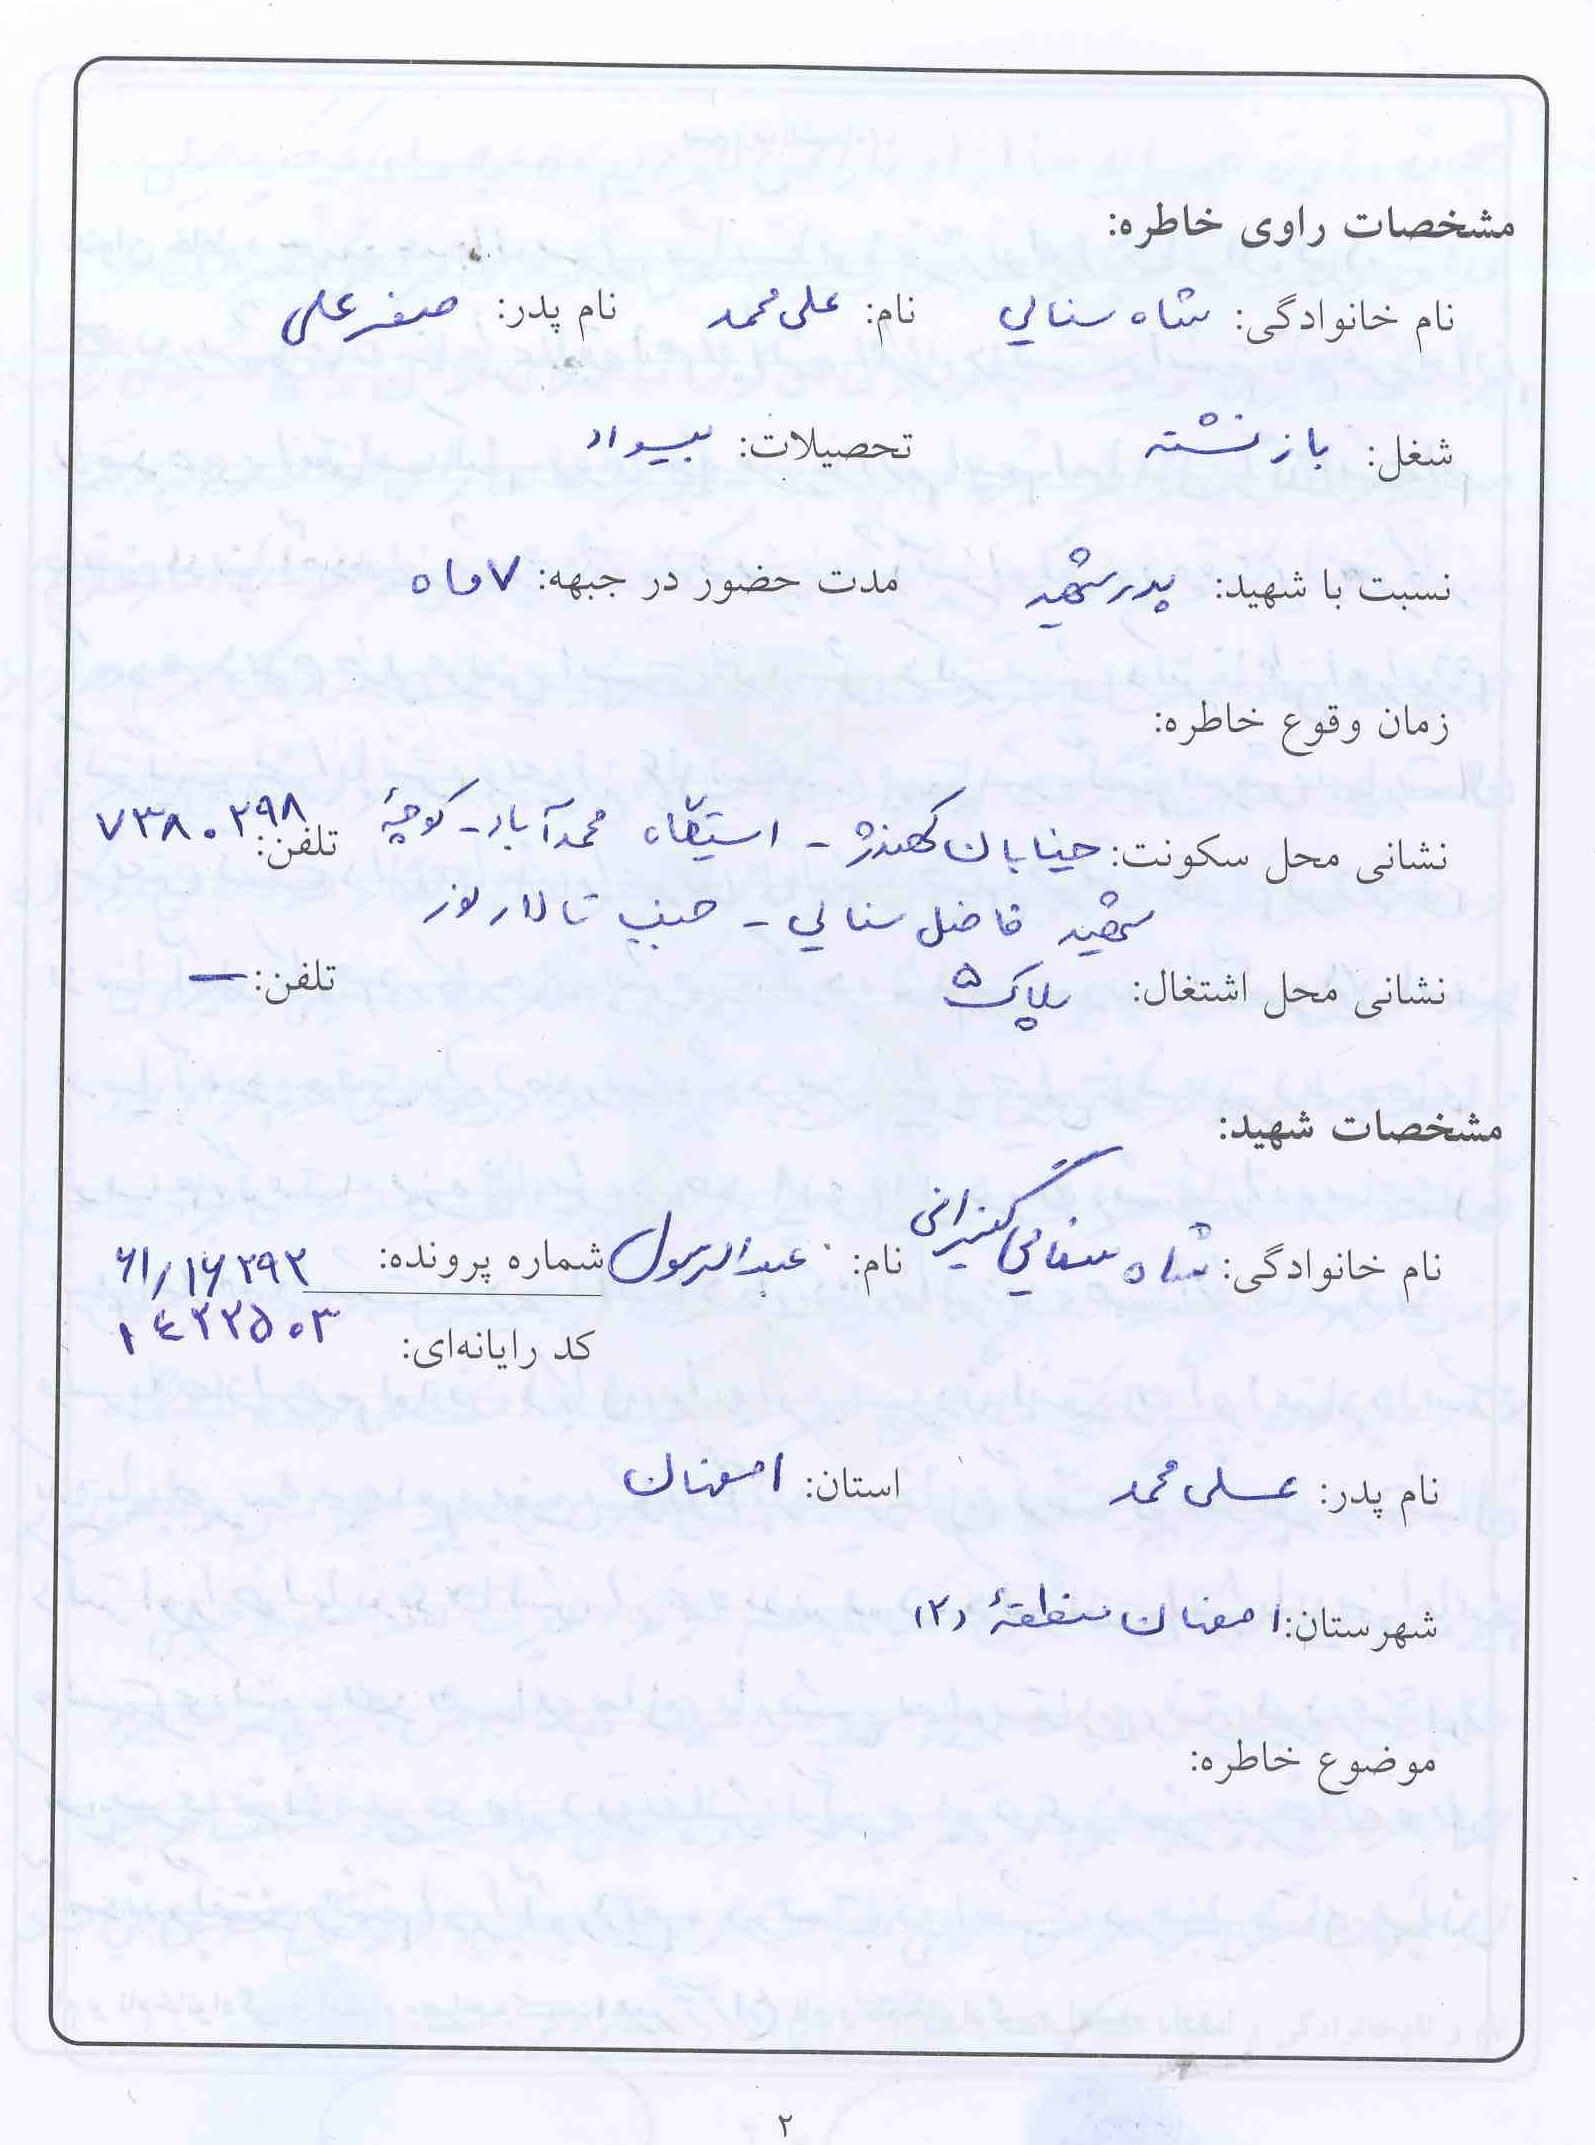 مشخصات راوی خاطره:
نام خانوادگی: شاه سنائی نام: علی محمد نام پدر: صفر علی
شغل: بازنشسته تحصیلات: بیسواد
نسبت با شهید: پدر شهید مدت حضور در جبهه: ۷ ماه
زمان وقوع خاطره:
نشانی محل سکونت: خیابان کهندژ - ایستگاه محمد آباد - کوچهٔ تلفن: ۷۳۸۰۲۹۸
شهید فاضل سنائی - جنب تالار نور
نشانی محل اشتغال: پلاک ۵ تلفن: —
مشخصات شهید:
نام خانوادگی: شاه سنائی گنیرانی نام: عبدالرسول شماره پرونده: ۶۱/۱۶۲۹۲
کد رایانه‌ای: ۱۴۲۲۵۰۳
نام پدر: علی محمد استان: اصفهان
شهرستان: اصفهان منطقهٔ (۲)
موضوع خاطره:
۲